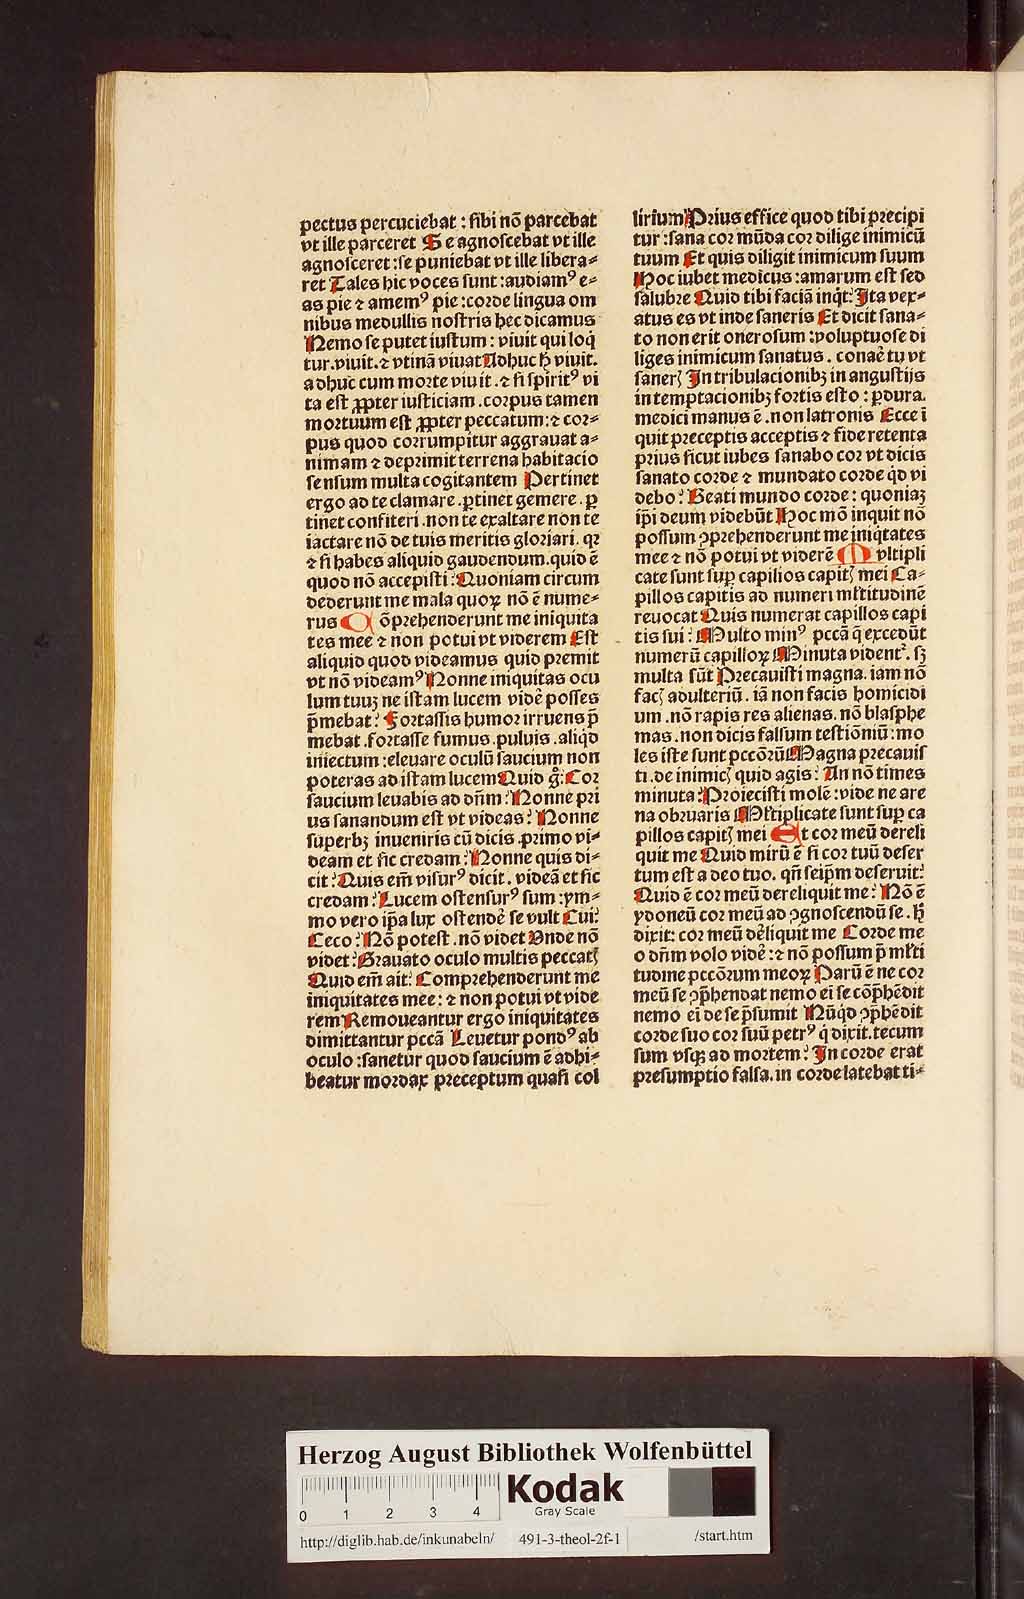 pectus percuciebat : sibi nō parcebat
vt ille parceret Se agnoscebat vt ille
agnosceret : se puniebat vt ille libera⸗
ret Tales hic voces sunt : audiamꝰ e⸗
as pie ⁊ amemꝰ pie : corde lingua om
nibus medullis nostris hec dicamus
Nemo se putet iustum : viuit qui loq̄
tur .viuit. ⁊ vtinā viuat Adhuc hͦ viuit.
adhuc cum morte viuit .⁊ si spiritꝰ vi
ta est ꝓpter iusticiam .corpus tamen
mortuum est ꝓpter peccatum: ⁊ cor⸗
pus quod corrumpitur aggrauat a⸗
nimam ⁊ deprimit terrena habitacio
sensum multa cogitantem Pertinet
ergo ad te clamare .ꝑtinet gemere .ꝑ
tinet confiteri .non te exaltare non te
iactare nō de tuis meritis gloriari. qꝛ
⁊ si habes aliquid gaudendum.quid ē
quod nō accepisti : Quoniam circum
dederunt me mala quoꝝ nō ē nume⸗
rus Cōprehenderunt me iniquita
tes mee ⁊ non potui vt viderem Est
aliquid quod videamus quid premit
vt nō videamꝰ Nonne iniquitas ocu
lum tuuꝫ ne istam lucem vidē posses
p̄mebat : Fortassis humor irruens p̄
mebat .fortasse fumus .puluis .aliqͥd
iniectum : eleuare oculū saucium non
poteras ad istam lucem Quid gͦ : Cor
saucium leuabis ad dn̄m : Nonne pri
us sanandum est vt videas : Nonne
superbꝫ inueniris cū dicis .primo vi⸗
deam et sic credam : Nonne quis di⸗
cit : Quis em̄ visurꝰ dicit. videā et sic
credam : Lucem ostensurꝰ sum : ym⸗
mo vero ip̄a lux ostendē se vult Cui:
Ceco : Nō potest .nō videt Vnde nō
videt : Grauato oculo multis peccatꝭ
Quid em̄ ait : Comprehenderunt me
iniquitates mee : ⁊ non potui vt vide
rem Remoueantur ergo iniquitates
dimittantur pccā Leuetur pondꝰ ab
oculo : sanetur quod saucium ē adhi⸗
beatur mordax preceptum quasi col
lirium Prius effice quod tibi precipi
tur : sana cor mūda cor dilige inimicū
tuum Et quis diligit inimicum suum
Hoc iubet medicus : amarum est sed
salubre Quid tibi faciā inqͥt: Ita vex⸗
atus es vt inde saneris Et dicit sana⸗
to non erit onerosum : voluptuose di
liges inimicum sanatus . conaē tu vt
sanerꝭ In tribulacionibꝫ in angustijs
in temptacionibꝫ fortis esto : ꝑdura.
medici manus ē .non latronis Ecce ī
quit preceptis acceptis ⁊ fide retenta
prius sicut iubes sanabo cor vt dicis
sanato corde ⁊ mundato corde qͥd vi
debo : Beati mundo corde : quoniaꝫ
ip̄i deum videbūt Hoc mō inquit nō
possum ꝯprehenderunt me iniqͥtates
mee ⁊ nō potui vt viderē Multipli
cate sunt suꝑ capillos capitꝭ mei Ca⸗
pillos capitis ad numeri ml̄titudinē
reuocat Quis numerat capillos capi
tis sui : Multo minꝰ pccā q̄ excedūt
numerū capilloꝝ Minuta videntᷣ. sꝫ
multa sūt Precauisti magna. iam nō
facꝭ adulteriū . iā non facis homicidi
um .nō rapis res alienas .nō blasphe
mas .non dicis falsum testiōniū : mo
les iste sunt pccōrū Magna precauis
ti .de inimicꝭ quid agis : An nō times
minuta : Proiecisti molē : vide ne are
na obruaris Ml̄tiplicate sunt suꝑ ca
pillos capitꝭ mei Et cor meū dereli
quit me Quid mirū ē si cor tuū deser
tum est a deo tuo. qn̄ seip̄m deseruit:
Quid ē cor meū dereliquit me : Nō ē
ydoneū cor meū ad ꝯgnoscendū se . hͦ
dixit : cor meū dēliquit me Corde me
o dn̄m volo vidē : ⁊ nō possum p̄ ml̄ti
tudine pccōrum meoꝝ Parū ē ne cor
meū se ꝯp̄hendat nemo ei se cōp̄hēdit
nemo ei de se p̄sumit Nūqͥd ꝯp̄hēdit
corde suo cor suū petrꝰ qͥ dixit .tecum
sum vsqꝫ ad mortem : In corde erat
presumptio falsa .in corde latebat ti⸗
Herzog August Bibliothek Wolfenbüttel
0 1 2 3 4
Kodak
Gray Scale
http://diglib.hab.de/inkunabeln/ 491-3-theol-2f-1 /start.htm